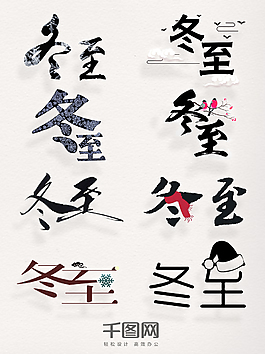 冬至
冬至
冬至
冬至
冬至
冬至
冬至
冬至
千图网
轻松设计 高效办公